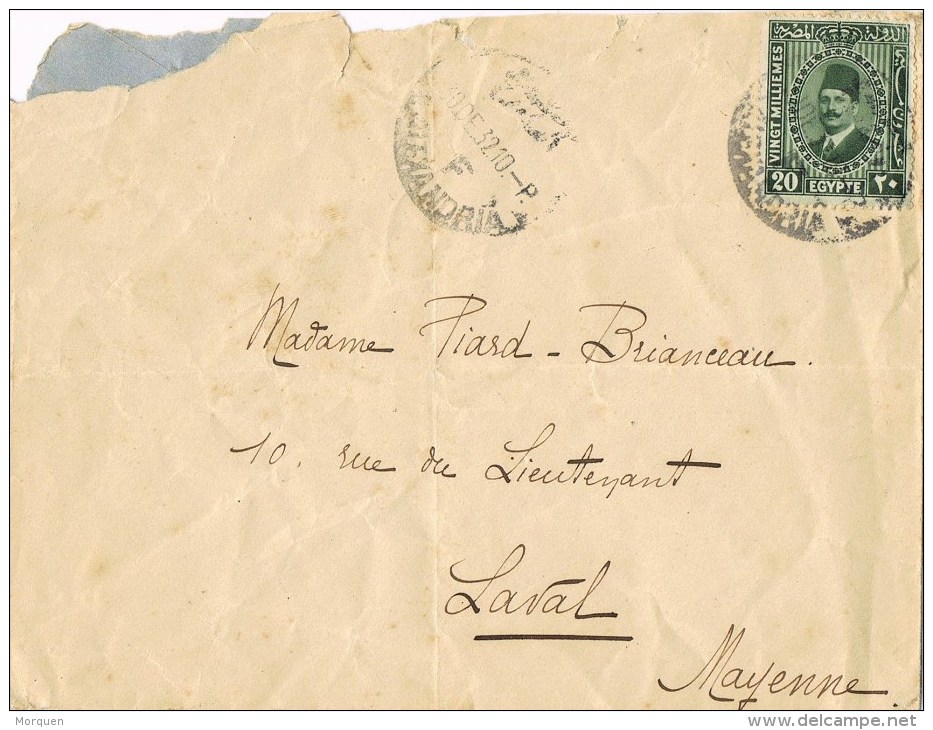 DE 32 10.-P
F
ALEXANDRIA
الدولة المصرية
VINGT MILLIEMES
20 EGYPTE ٢٠
DRIA
Madame Piard - Brianceau.
10. rue du Lieutenant
Laval
Mayenne
Morquen
delcampe.net